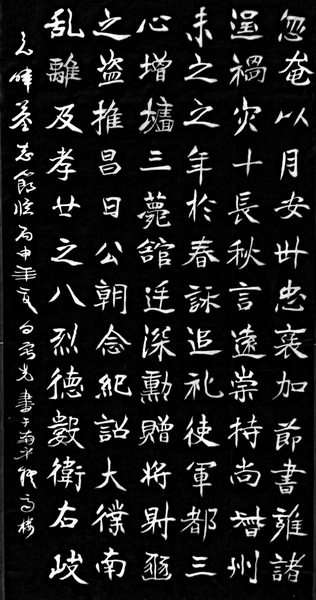 忽奄以月安丗忠襄加節書雍諸
逞禍灾十長秋言遠崇持尚督州
未之之年於春詠追礼使軍都三
心增墻三薨舘迁深勳贈將射
之盗推昌日公朝念紀詔大僕南
乱離及孝廿之八烈德數衛右岐
元暐墓志節臨丙申年夏白光書于南平高楼